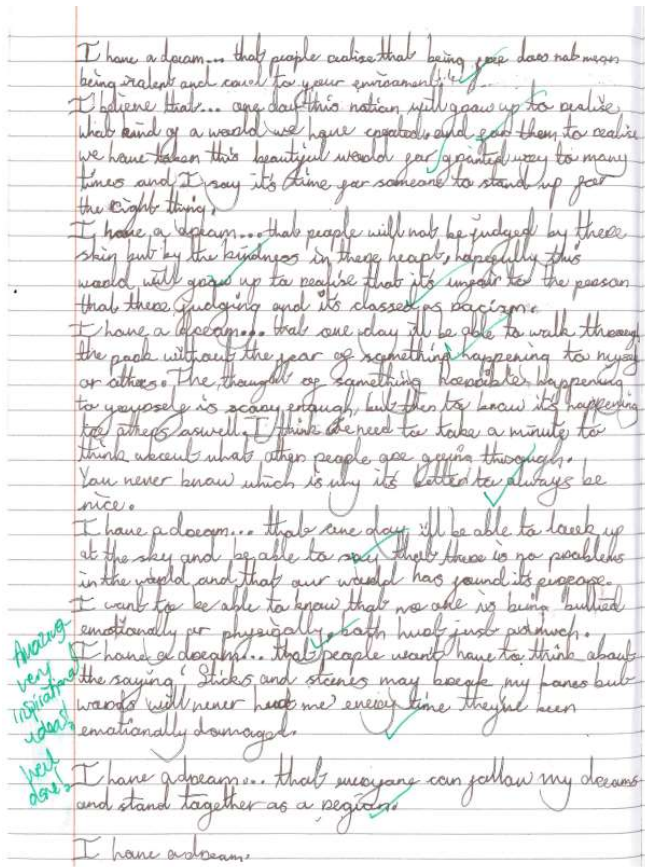 I have a dream... that people realise that being free does not mean
being violent and cruel to your enviroment.
I believe that... one day this nation will grow up to realise
what kind of a world we have created. and for them to realise
we have taken this beautiful world for granted way to many
times and I say it's time for someone to stand up for
the right thing.
I have a dream... that people will not be judged by there
skin but by the kindness in there heart, hopefully this
world will grow up to realise that it's unfair to the person
that there judging and its classed as racism.
I have a dream... that one day ill be able to walk through
the park without the fear of something happening to myself
or others. The thought of something horrible happening
to yourself is scary enough, but then to know its happening
to others aswell. I think we need to take a minute to
think about what other people are going through.
You never know which is why it's better to always be
nice.
I have a dream... that one day ill be able to look up
at the sky and be able to say that there is no problems
in the world and that our world has found its purpose.
I want to be able to know that no one is being bullied
emotionally or physically, both hurt just as much.
I have a dream... that people wont have to think about
the saying 'Sticks and stones may break my bones but
words will never hurt me' every time they've been
emotionally damaged.
I have a dream... that everyone can follow my dreams
and stand together as a region.
I have a dream.
Amazing
very
inspirational
ideas!
well
done!